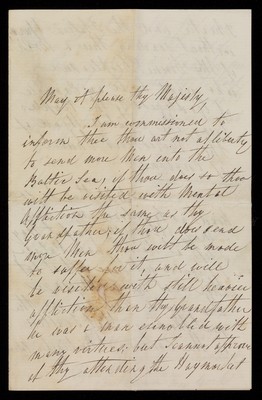 May it please thy Majesty,
I am commissioned to
inform thee thou art not at liberty
to send more Men into the
Baltic Sea, if thou does so thou
will be visited with Mental
Affliction the same as thy
Grandfather, if thou does send
any Men thou will be made
to suffer for it and will
be visited with still heavier
affliction than thy Grandfather
he was a man ennobled with
many virtues, but I cannot approve
of thy attending the Haymarket